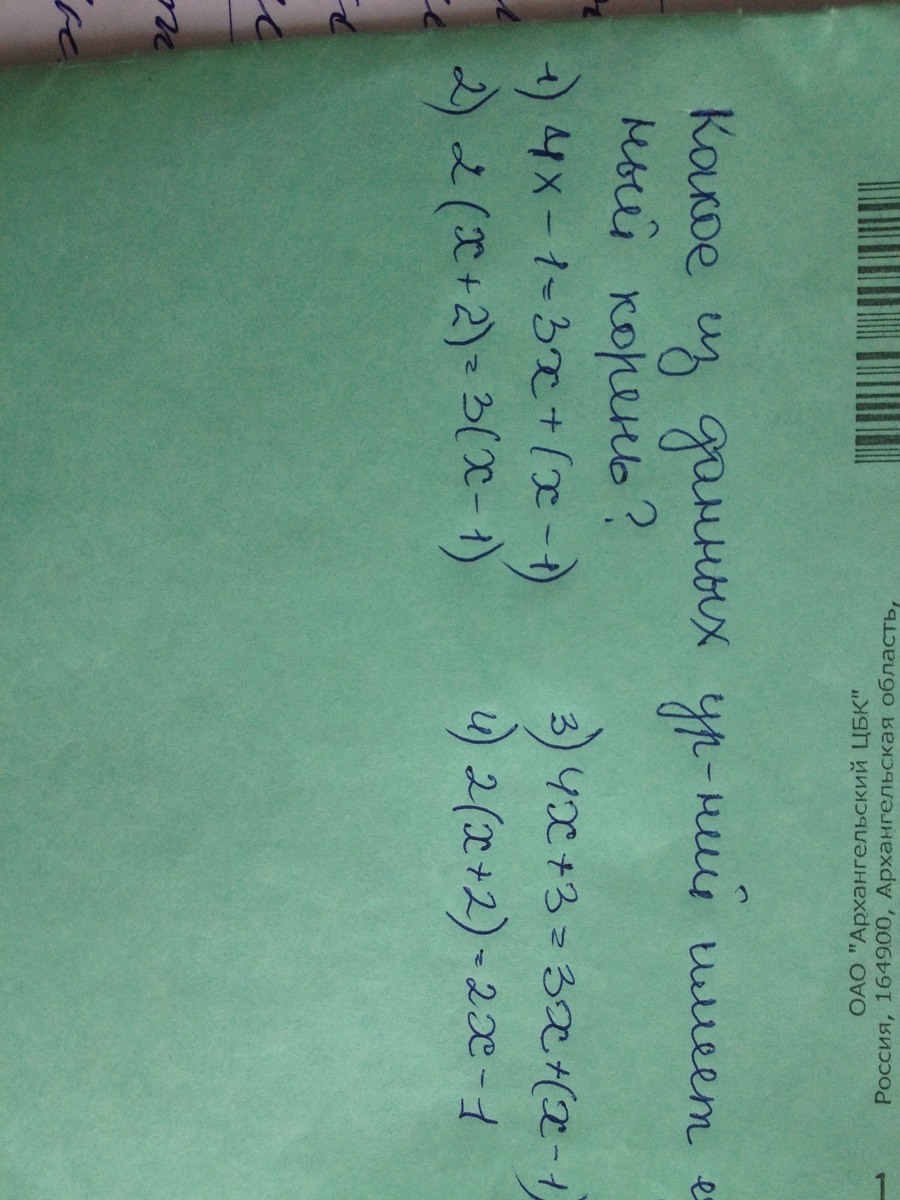 ОАО "Архангельский ЦБК"
Россия, 164900, Архангельская область,
Какое из данных ур-ний имеет е
ный корень?
1) 4x - 1 = 3x + (x - 1)
3) 4x + 3 = 3x + (x - 1)
2) 2 (x + 2) = 3(x - 1)
4) 2(x + 2) = 2x - 1